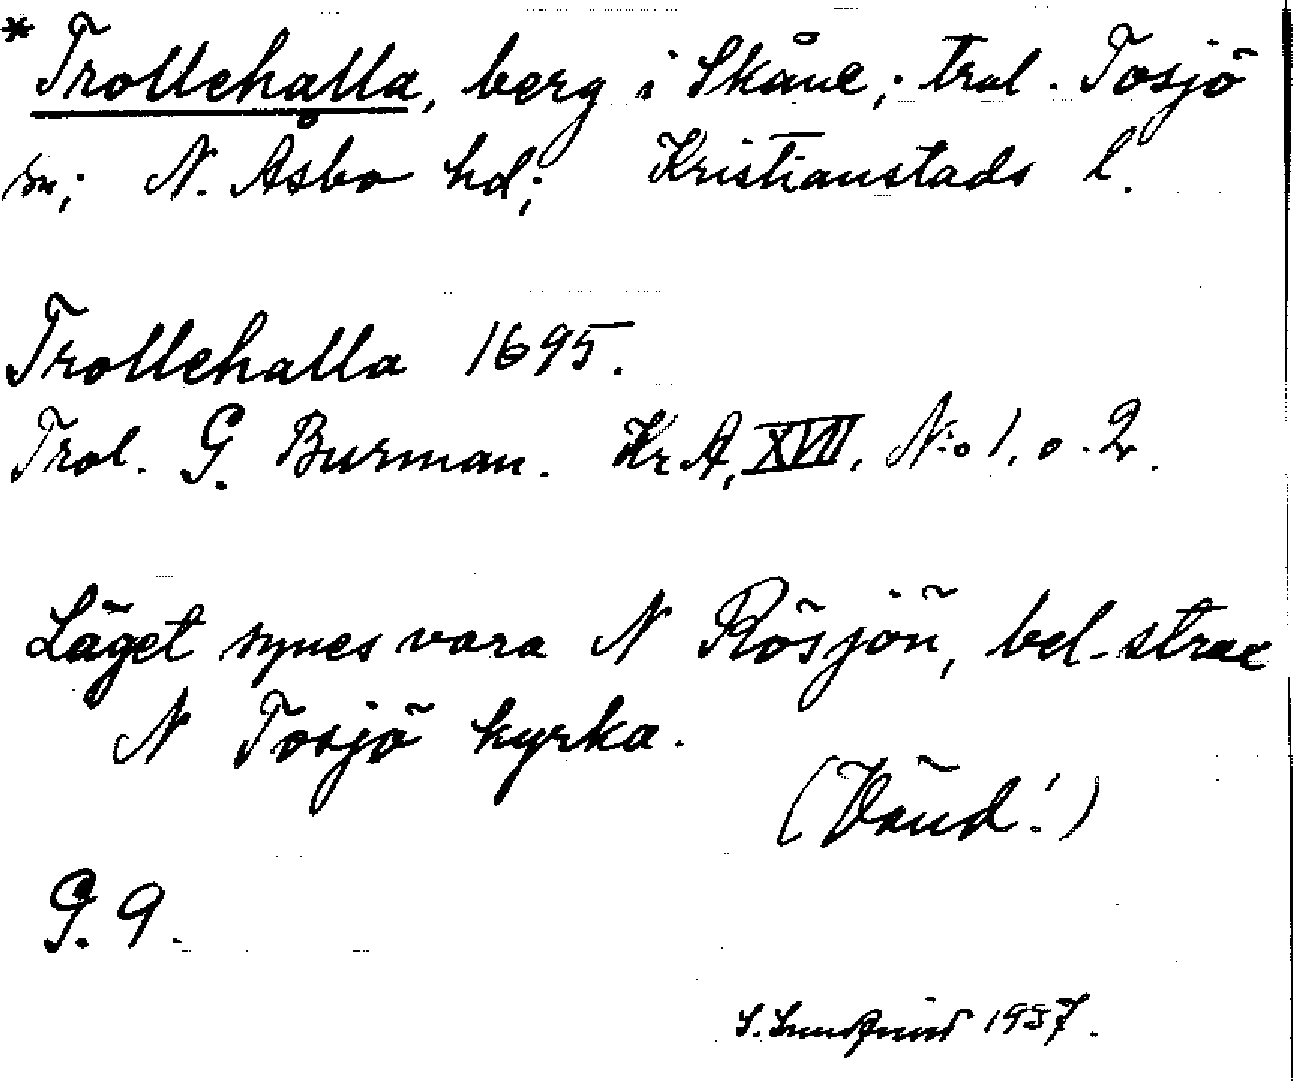 *Trollehalla, berg i Skåne; trol. Tosjö
sn; N. Åsbo hd; Kristianstads l.
Trollehalla 1695.
Trol. G. Burman. Kr A, XVII, N:o 1. o. 2.
Läget synes vara N Rösjön, bel. strax
N Tosjö kyrka.
(Vänd!)
G. 9.
1937.